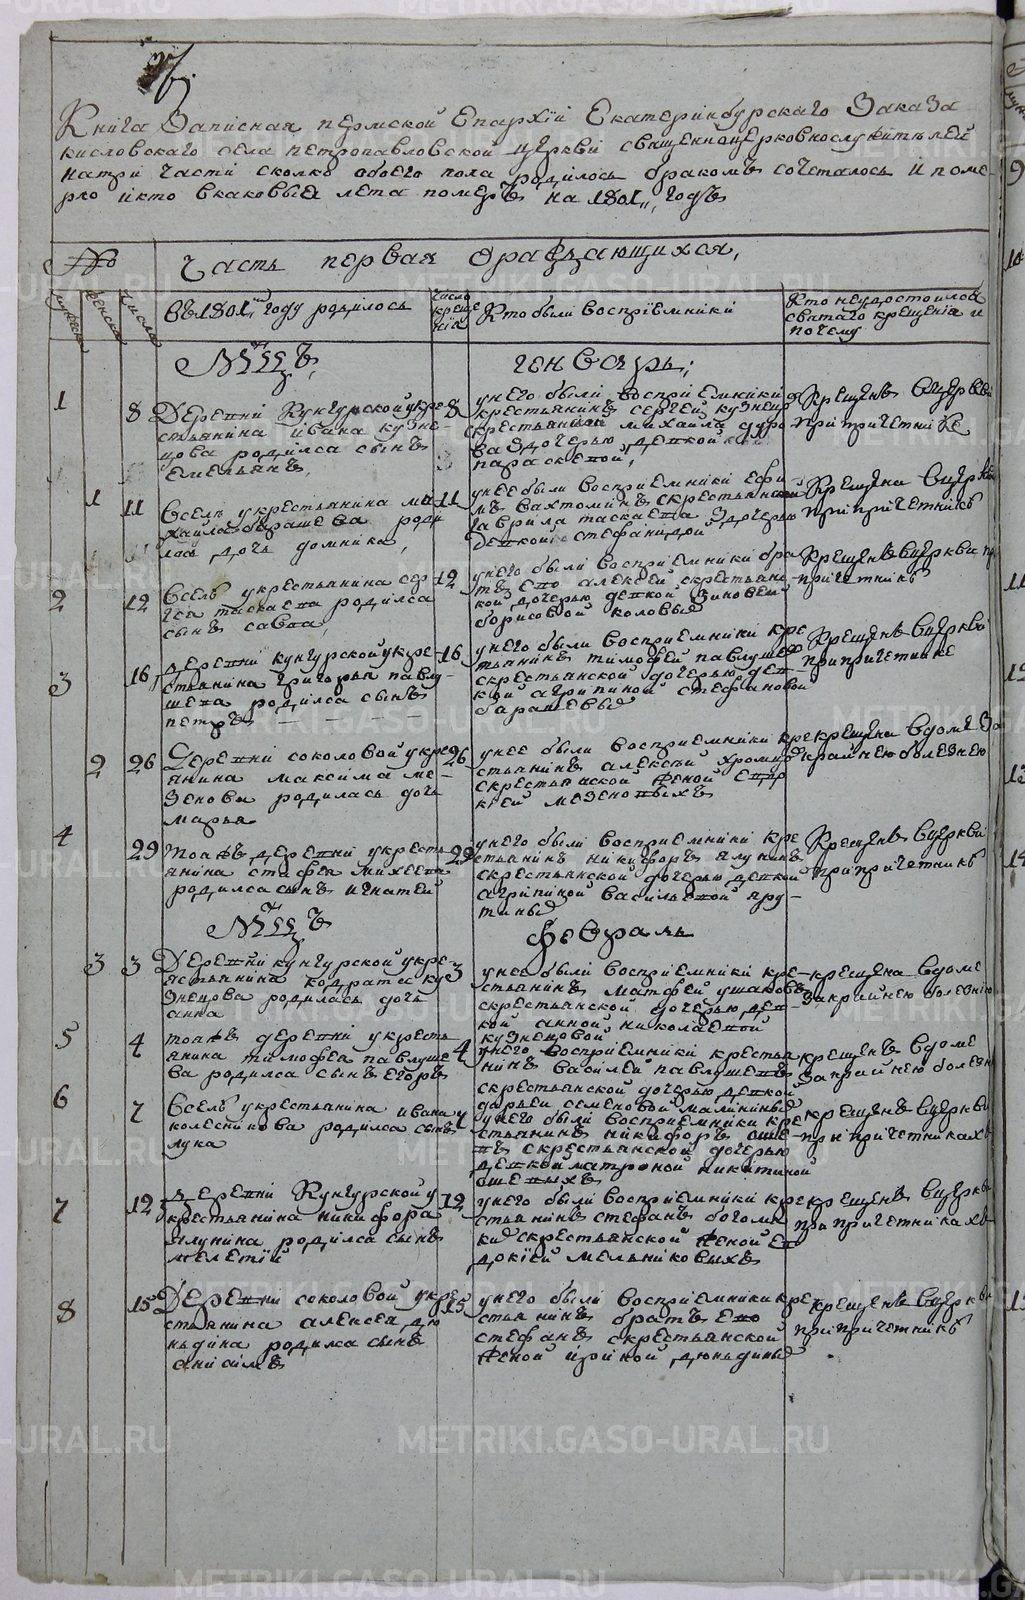 Книга Записная пермской Епархїи Екатеринбурскаго Заказа
кисловскаго села петропавловской церкви священноцерковнослужителей
натри части сколко обоего пола родилось бракомъ сочеталось и поме-
рло икто вкаковыя лета померъ на 1801,, годъ
№
часть первая ораждающихся,
мужеск
женска
числа
въ1801м году родилось
число
креще
нїя
Кто были восприемники
Кто неудостоился
святаго крещенія и
почему
Мцъ
генварь;
1
8
Деревни Кунгурской укре
стьянина ивана кузне-
цова родился сынъ
Емельянъ,
8
унего были восприемники
крестьянинъ сергей кузнецо
скрестьянина михаила
ва здочерью девкой
параскевой,
Крещенъ вцеркви
припричетнике
1
11
всель укрестьянина ми
хайла барашева роди
лась дочь домника,
11
унее были восприемники ефи
мъ вахтоминъ скрестьянина
гаврила таскаева здочерью
девкой стефанидой
Крещена вцеркви
припричетникъ
2
12
всель укрестьянина сер
гея таскаева родился
сынъ савва,
12
унего были восприемники бра
тъ ево алексей скрестьянс
кой дочерью девкой зиновей
борисовой коловыи
Крещенъ вцеркви пр
причетникъ
3
16
деревни кунгурской укре-
стьянина григорья павлу-
шева родился сынъ
петръ
16
унего были восприемники кре
стьянинъ тимофей павлушев
скрестьянской дочерью дев-
кой агрипиной стефановой
барашевы
Крещенъ вцеркви
припричетнике
2
26
деревни соколовой укре
янина максима ме-
зенова родилась дочь
марья
26
унее были восприемники кре
стьянинъ алексей хромцо
скрестьянской женой евдо
кией мезеновыхъ
крещена вдоме за
крайнею болезнею
4
29
тояжъ деревни укресть
янина стафея михеева
родился сынъ игнатей
29
унего были восприемники кре
стьянинъ никифоръ ялунинъ
скрестьянской дочерью девкой
агрипиной васильевой яру-
тины
Крещенъ вцеркви
припричетникъ
Мцъ
февраль
3
3
Деревни кунгурской укре-
естьянина кодратя ку
знецова родилась дочь
анна
3
унее были восприемники кре-
стьянинъ матфей ушаковъ
скрестьянской дочерью дев-
кой анной николаевой
кузнецовой
крещена вдоме
закрайнею болезнію
5
4
тояжъ деревни укресть
янина тимофея павлуше
ва родился сынъ егоръ
4
унего восприемники крестья
нинъ василей павлушевъ
скрестьянской дочерью девкой
дарьеи семеновой малинины
крещенъ вдоме
закрайнею болезн
6
7
всель укрестьянина ивана
колесникова родился сынъ
лука
7
унего были восприемники кре
стьянинъ никифоръ оше-
въ скрестьянской дочерью
девкой матроной никитиной
ошевыхъ
крещенъ вцеркви
при причетникахъ
7
12
деревни Кунгурской у
крестьянина никифора
ялунина родился сынъ
мелетїй
12
унего были восприемники кре
стьянинъ стефанъ богомо
ки скрестьянской женой ев
докїей мельниковыхъ
крещенъ вцеркви
при причетникахъ
8
15
Деревни соколовой укре
стьянина алексея дю
ньдина родился сынъ
анисимъ
15
унего были восприемники кре
стьянинъ братъ ево
стефанъ скрестьянской
женой ириной дюньдины
крещенъ вцеркви
припричетникъ
METRIKI.GASO-URAL.RU